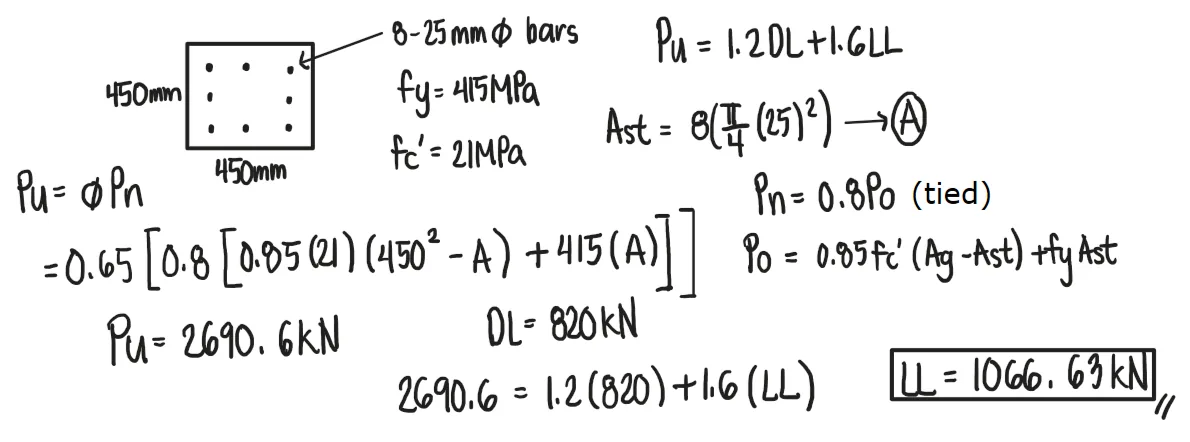 8-25mm ϕ bars
450mm
fy = 415MPa
fc' = 21MPa
450mm
Pu = 1.2DL+1.6LL
Ast = 8(π/4 (25)²) → Ⓐ
Pu = ϕPn
Pn = 0.8Po (tied)
= 0.65[0.8[0.85(21)(450² - A) + 415(A)]]
Po = 0.85fc' (Ag - Ast) + fy Ast
Pu = 2690.6kN
DL = 820kN
2690.6 = 1.2(820) + 1.6(LL)
LL = 1066.63kN